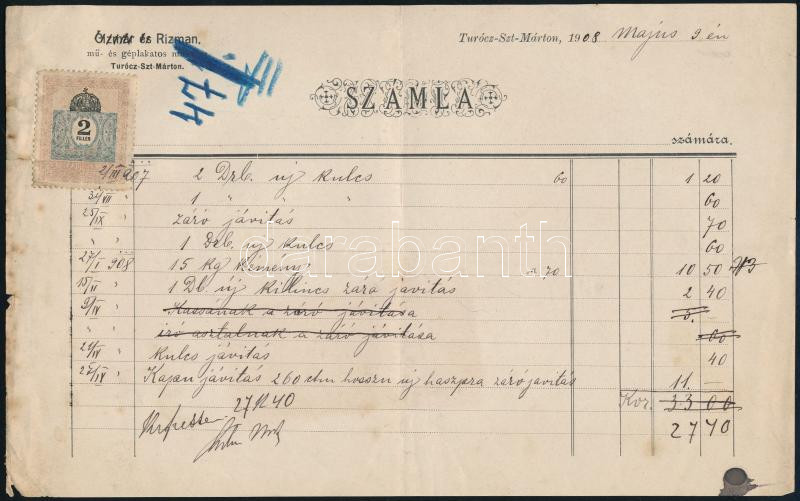 és Rizman.
mű- és géplakatos
Turócz-Szt-Márton.
Turócz-Szt-Márton, 1908 Majus 9 én
47
SZÁMLA
számára.
2 FILLÉR
2/III 907 2 Drb. új kulcs 60 1 20
31/VII " 1 " " " 60
25/IX " záró jávitás 70
" " 1 Drb új kulcs 60
27/I 908 15 kg kémény a 70 10 50
15/II " 1 Db. új killincs zára javitás 2 40
9/IV " Kassának a záró jávitása 5. —
" iró asztalnak a záró jávitása 60
21/IV " kulcs jávitás 40
27/IV " Kapu jávitás 260 ctm hosszu új haszpra záró javitás 11. —
Kor. 33 00
27 K 40
27 40
darabanth